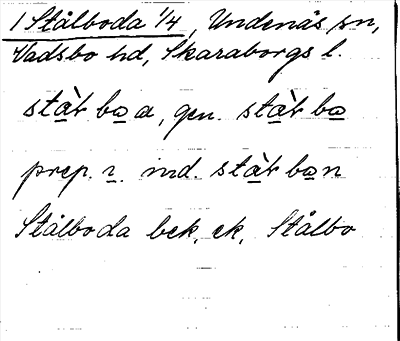 1 Stålboda 1/4, Undenäs sn,
Vadsbo hd, Skaraborgs l.
stàt ba a, gen. stàt ba
prep. i. ind. stàt ban
Stålboda bek. ek. Stålbo